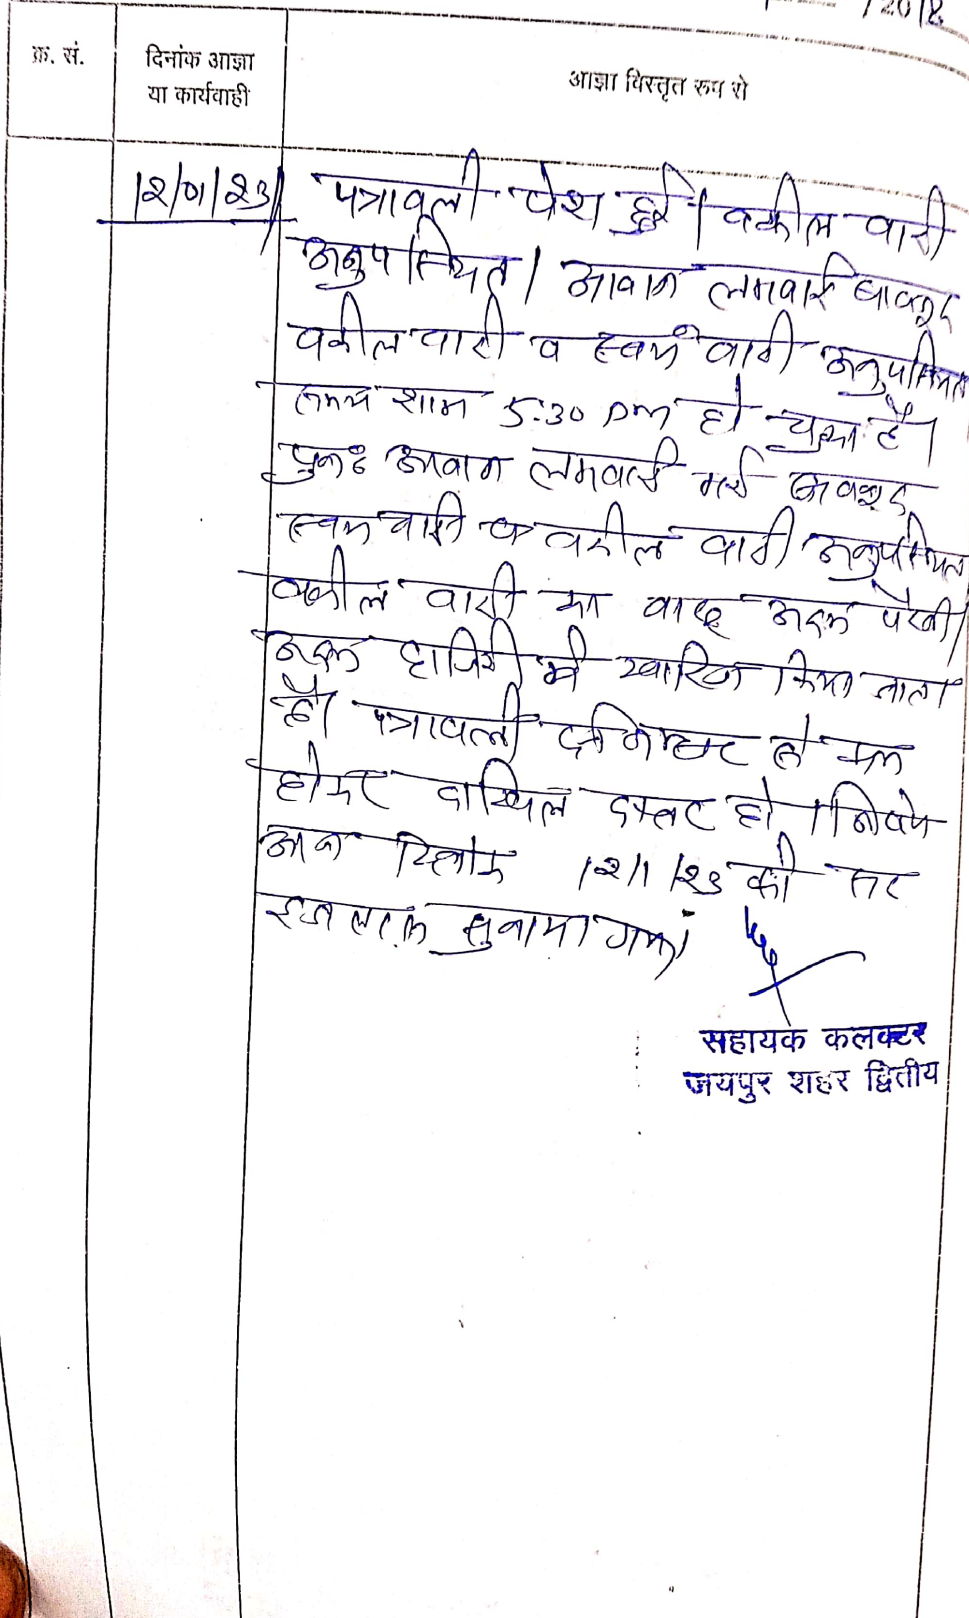 /2018
क्र. सं.
दिनांक आज्ञा
या कार्यवाही
आज्ञा विस्तृत रूप से
12/01/23
पत्रावली पेश हुई। वकील वादी
अनुपस्थित। आवाज लगवाई बावजूद
वकील वादी व स्वयं वादी अनुपस्थित
समय शाम 5:30 pm हो चुका है।
पुनः आवाज लगवाई गई बावजूद
स्वयं वादी व वकील वादी अनुपस्थित
वकील वादी का वाद अदम पैरवी
अदम हाजिरी में खारिज किया जाता
है। पत्रावली से कम
होकर दाखिल दफ्तर हो। निर्णय
आज दिनांक 12/1/23 को सर
इजलास सुनाया गया।
सहायक कलक्टर
जयपुर शहर द्वितीय